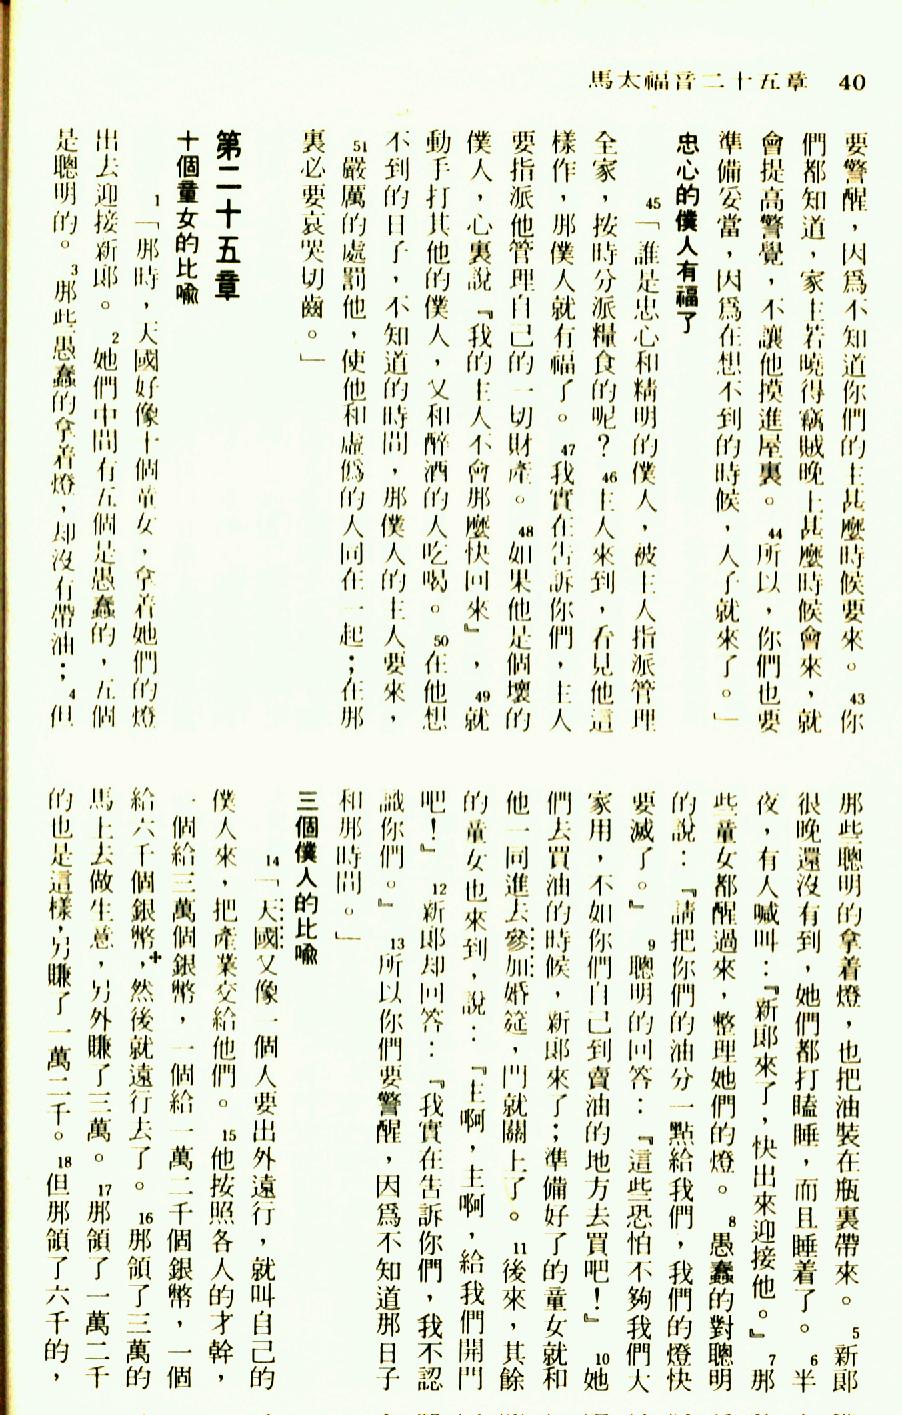 馬太福音二十五章　40
要警醒，因爲不知道你們的主甚麼時候要來。43你
們都知道，家主若曉得竊賊晚上甚麼時候會來，就
會提高警覺，不讓他摸進屋裏。44所以，你們也要
準備妥當，因爲在想不到的時候，人子就來了。」
忠心的僕人有福了
45「誰是忠心和精明的僕人，被主人指派管理
全家，按時分派糧食的呢？46主人來到，看見他這
樣作，那僕人就有福了。47我實在告訴你們，主人
要指派他管理自己的一切財產。48如果他是個壞的
僕人，心裏說『我的主人不會那麼快回來』，49就
動手打其他的僕人，又和醉酒的人吃喝。50在他想
不到的日子，不知道的時間，那僕人的主人要來，
51嚴厲的處罰他，使他和虛僞的人同在一起；在那
裏必要哀哭切齒。」
第二十五章
十個童女的比喩
1「那時，天國好像十個童女，拿着她們的燈
出去迎接新郎。2她們中間有五個是愚蠢的，五個
是聰明的。3那些愚蠢的拿着燈，却沒有帶油；4但
那些聰明的拿着燈，也把油裝在瓶裏帶來。5新郎
很晚還沒有到，她們都打瞌睡，而且睡着了。6半
夜，有人喊叫：『新郎來了，快出來迎接他。』7那
些童女都醒過來，整理她們的燈。8愚蠢的對聰明
的說：『請把你們的油分一點給我們，我們的燈快
要滅了。』9聰明的回答：『這些恐怕不夠我們大
家用，不如你們自己到賣油的地方去買吧！』10她
們去買油的時候，新郎來了；準備好了的童女就和
他一同進去參加婚筵，門就關上了。11後來，其餘
的童女也來到，說：『主啊，主啊，給我們開門
吧！』12新郎却回答：『我實在告訴你們，我不認
識你們。』13所以你們要警醒，因爲不知道那日子
和那時間。」
三個僕人的比喩
14「天國又像一個人要出外遠行，就叫自己的
僕人來，把產業交給他們。15他按照各人的才幹，
一個給三萬個銀幣，一個給一萬二千個銀幣，一個
給六千個銀幣+，然後就遠行去了。16那領了三萬的
馬上去做生意，另外賺了三萬。17那領了一萬二千
的也是這樣，另賺了一萬二千。18但那領了六千的，